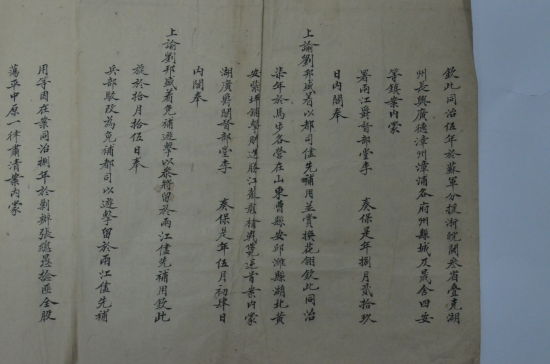 欽此同治伍年於蘇軍分援浙皖閩叁省疊克湖
州長興廣德漳州漳浦各府州縣城及晟舍四安
等鎮案內蒙
署兩江爵督部堂李 奏保是年捌月貳拾玖
日內閣奉
上諭劉邦盛着以都司儘先補用並賞換花翎欽此同治
柒年於馬步各營在山東曹縣安邱濰縣湖北黃
安紫坪鋪擊剿逆勝仗 案內蒙
湖廣爵閣督部堂李 奏保是年伍月初肆日
內閣奉
上諭劉邦盛着免補遊擊以叅將留於兩江儘先補用欽此
旋於拾月拾伍日奉
兵部駁改為免補都司以遊擊留於兩江儘先補
用等因在案同治捌年於剿辦張總愚捻匪全股
蕩平中原一律肅清案內蒙